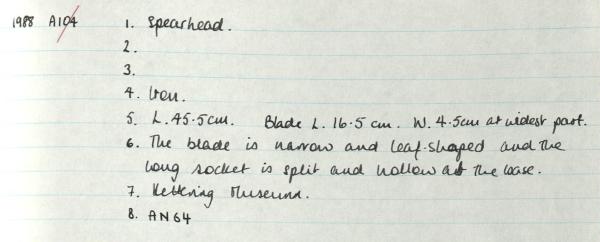 1988 A104 1. Spearhead.
2.
3.
4. Iron.
5. L. 45.5cm. Blade L. 16.5 cm. W. 4.5cm at widest part.
6. The blade is narrow and leaf-shaped and the
long socket is split and hollow at the base.
7. Kettering Museum.
8. AN64